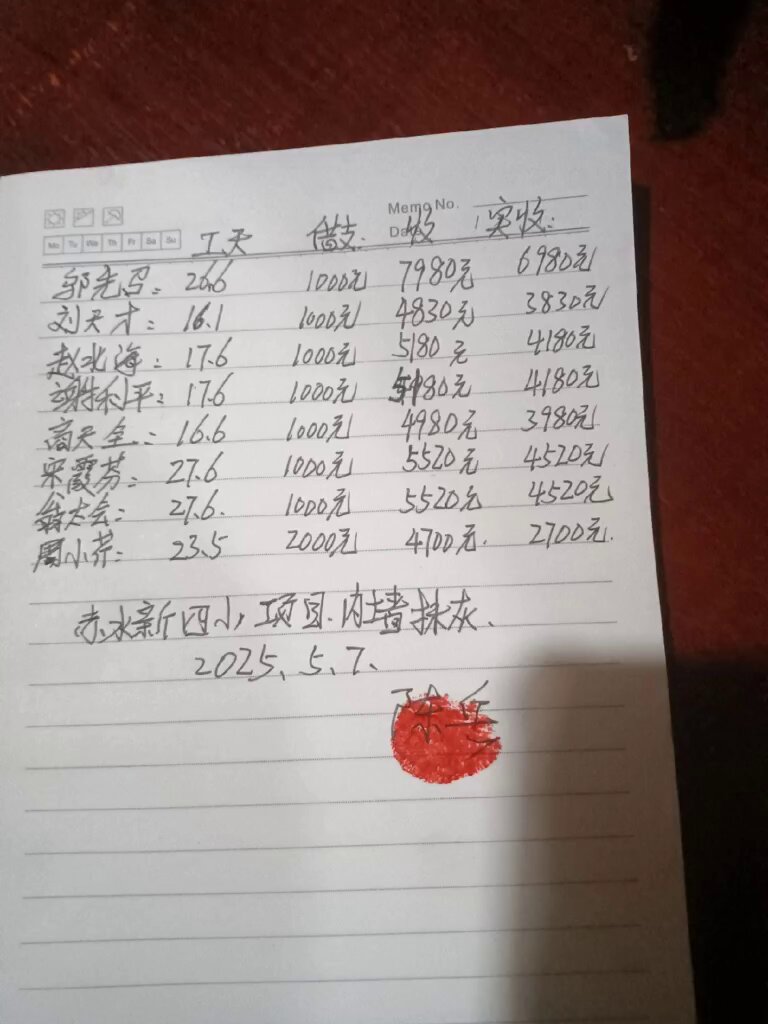 Memo No.
Mo Tu We Th Fr Sa Su
Da
工天 借支: 收 实收:
邬先召: 26.6 1000元 7980元 6980元
刘天才: 16.1 1000元 4830元 3830元
赵北海: 17.6 1000元 5180元 4180元
谢利平: 17.6 1000元 5180元 4180元
高天全: 16.6 1000元 4980元 3980元
宋霞芬: 27.6 1000元 5520元 4520元
翁大会: 27.6. 1000元 5520元 4520元
周小芹: 23.5 2000元 4700元. 2700元.
赤水新四小项目.内墙抹灰.
2025.5.7.
陈